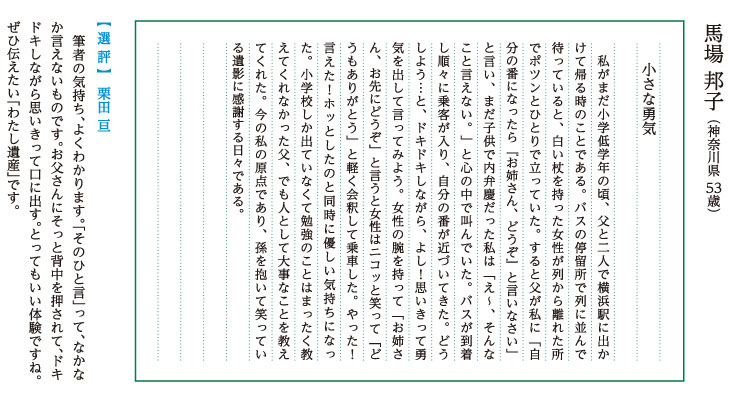 馬場 邦子（神奈川県 53歳）
小さな勇気
　私がまだ小学低学年の頃、父と二人で横浜駅に出か
けて帰る時のことである。バスの停留所で列に並んで
待っていると、白い杖を持った女性が列から離れた所
でポツンとひとりで立っていた。すると父が私に「自
分の番になったら『お姉さん、どうぞ』と言いなさい」
と言い、まだ子供で内弁慶だった私は「え～、そんな
こと言えない。」と心の中で叫んでいた。バスが到着
し順々に乗客が入り、自分の番が近づいてきた。どう
しよう…と、ドキドキしながら、よし！思いきって勇
気を出して言ってみよう。女性の腕を持って「お姉さ
ん、お先にどうぞ」と言うと女性はニコッと笑って「ど
うもありがとう」と軽く会釈して乗車した。やった！
言えた！ホッとしたのと同時に優しい気持ちになっ
た。小学校しか出ていなくて勉強のことはまったく教
えてくれなかった父、でも人として大事なことを教え
てくれた。今の私の原点であり、孫を抱いて笑ってい
る遺影に感謝する日々である。
【選評】 栗田 亘
　筆者の気持ち、よくわかります。「そのひと言」って、なかな
か言えないものです。お父さんにそっと背中を押されて、ドキ
ドキしながら思いきって口に出す。とってもいい体験ですね。
ぜひ伝えたい「わたし遺産」です。